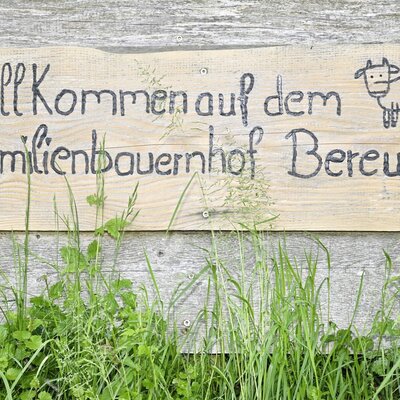 llkommen auf dem
milienbauernhof Bereu